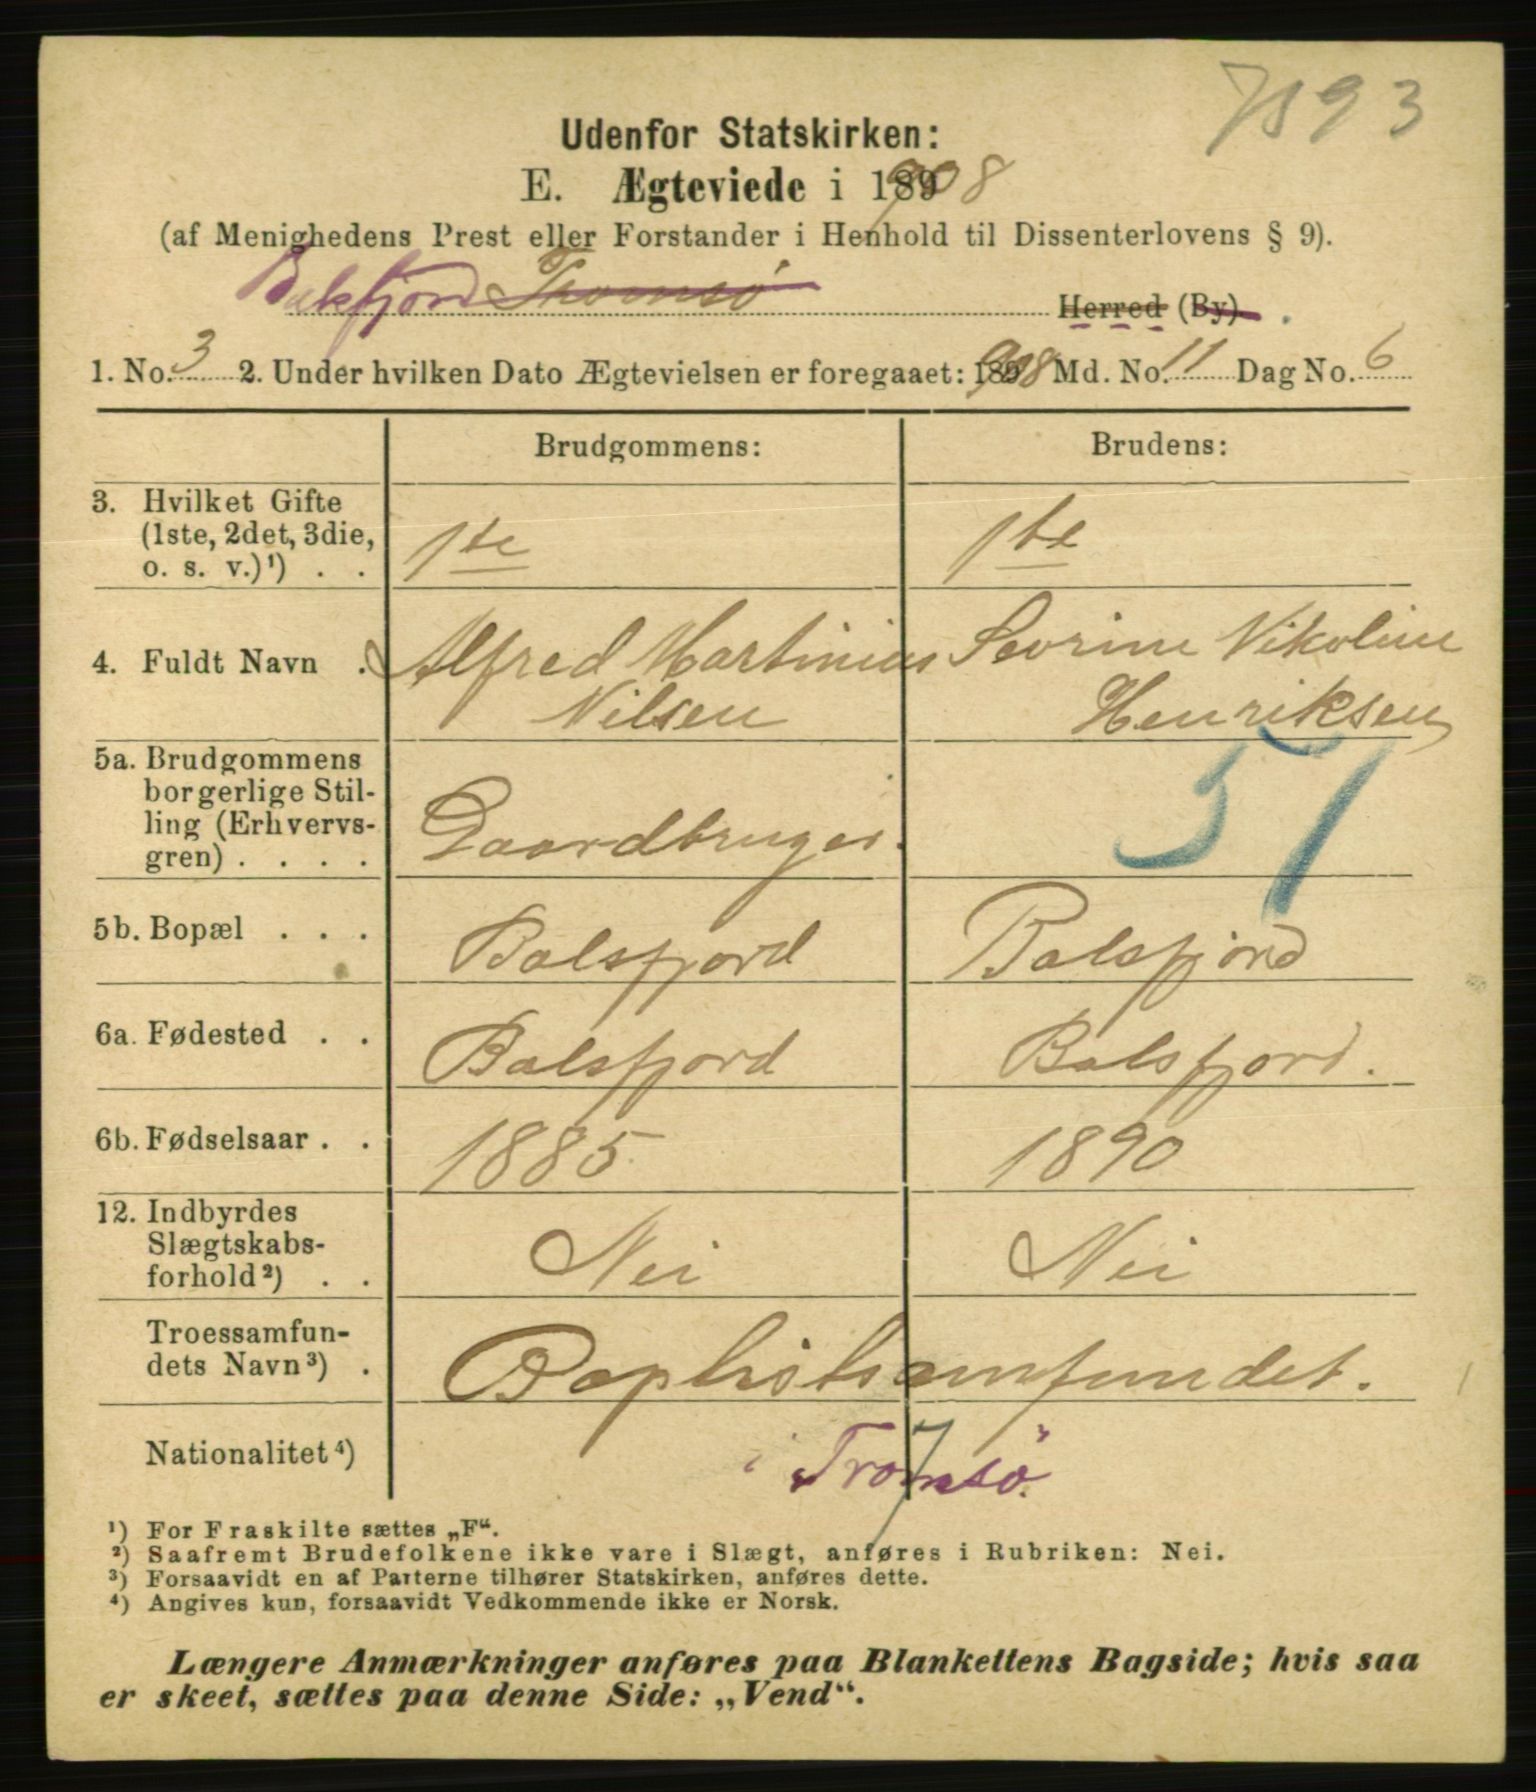 7893
Udenfor Statskirken:
E. Ægteviede i 1908
(af Menighedens Prest eller Forstander i Henhold til Dissenterlovens § 9).
Balsfjord Tromsø Herred (By).
1. No. 3 2. Under hvilken Dato Ægtevielsen er foregaaet: 1908 Md. No. 11 Dag No. 6
Brudgommens: Brudens:
3. Hvilket Gifte
(1ste, 2det, 3die,
o. s. v.)¹) . . 1ste 1ste
4. Fuldt Navn . Alfred Martinius Nilsen Sevrine Nikoline Henriksen
5a. Brudgommens
borgerlige Stil-
ling (Erhvervs-
gren) . . . . Gaardbruger. 57
5b. Bopæl . . . Balsfjord Balsfjord
6a. Fødested . . Balsfjord Balsfjord.
6b. Fødselsaar . . 1885 1890
12. Indbyrdes
Slægtskabs-
forhold²) . . Nei Nei
Troessamfun-
dets Navn³) . Baptistsamfundet.
Nationalitet⁴) i Tromsö. 7
¹) For Fraskilte sættes „F“.
²) Saafremt Brudefolkene ikke vare i Slægt, anføres i Rubriken: Nei.
³) Forsaavidt en af Parterne tilhører Statskirken, anføres dette.
⁴) Angives kun, forsaavidt Vedkommende ikke er Norsk.
Længere Anmærkninger anføres paa Blankettens Bagside; hvis saa
er skeet, sættes paa denne Side: „Vend“.